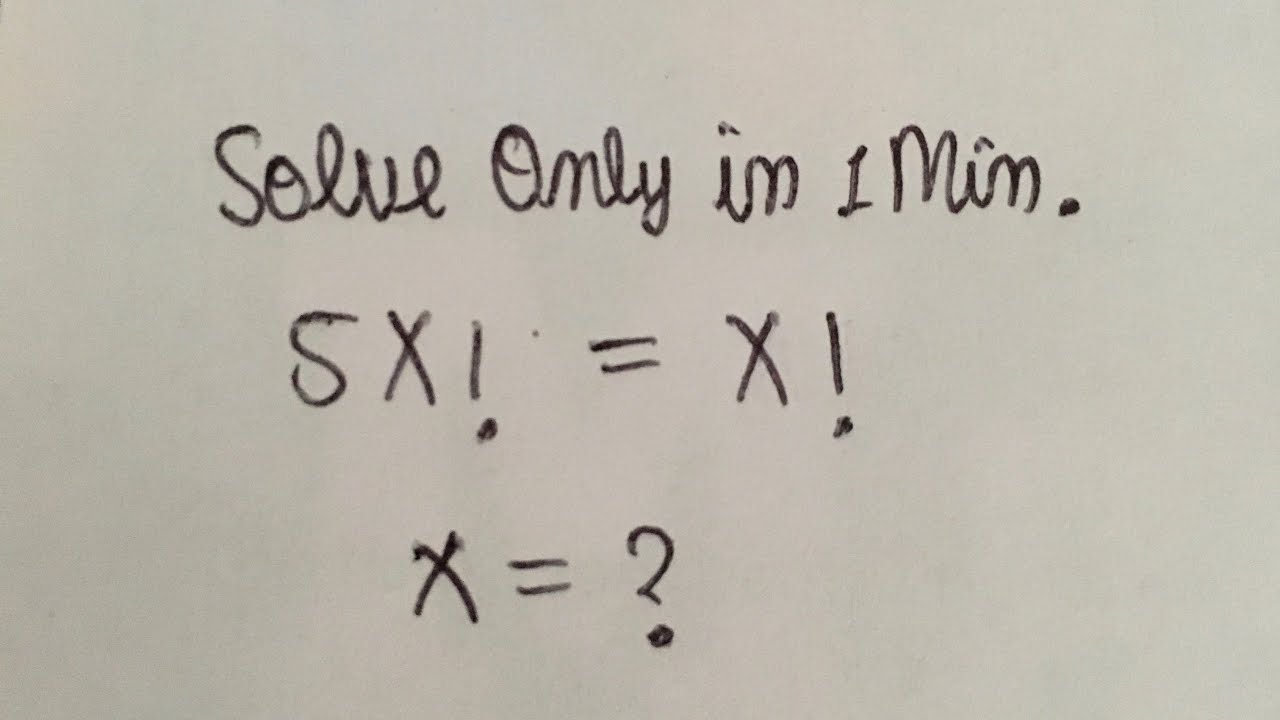 Solve Only in 1 Min.
5X! = X!
X = ?